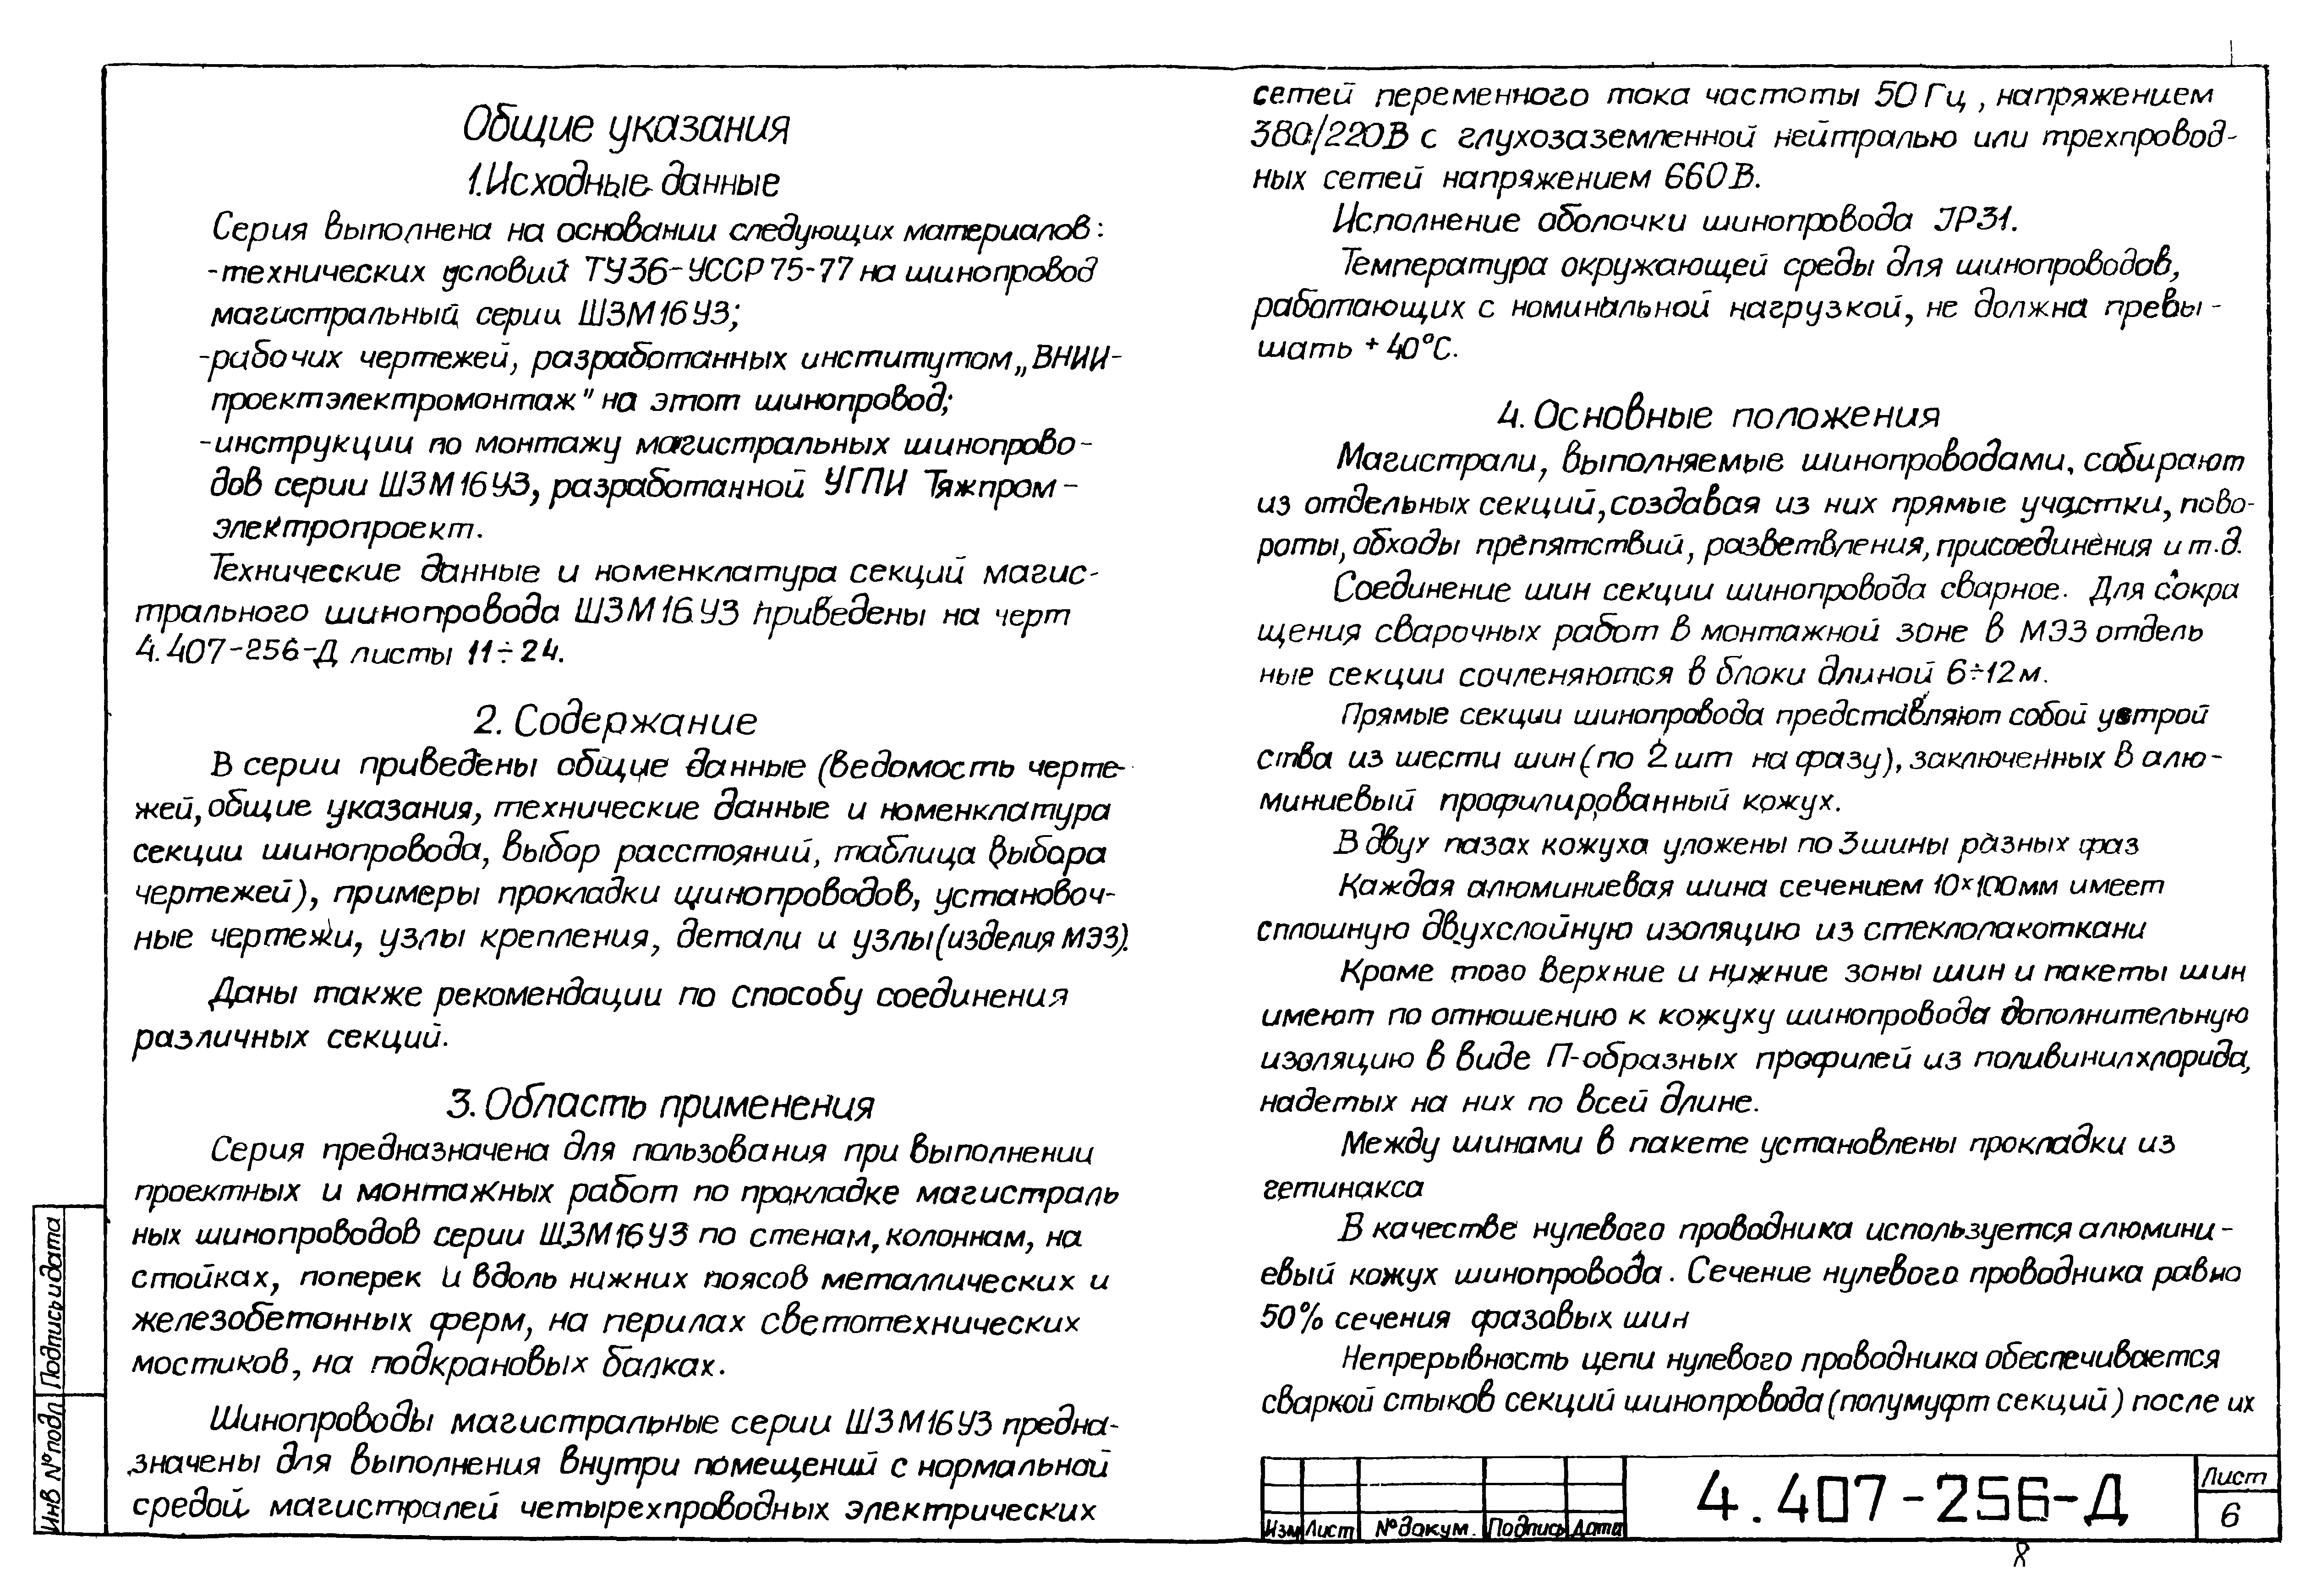 Общие указания
1. Исходные данные
Серия выполнена на основании следующих материалов:
-технических условий ТУ36-УССР 75-77 на шинопровод
магистральный серии ШЗМ16УЗ;
-рабочих чертежей, разработанных институтом „ВНИИ-
проектэлектромонтаж" на этот шинопровод;
-инструкции по монтажу магистральных шинопрово-
дов серии ШЗМ16УЗ, разработанной УГПИ Тяжпром-
электропроект.
Технические данные и номенклатура секций магис-
трального шинопровода ШЗМ16УЗ приведены на черт
4.407-256-Д листы 11÷24.
2. Содержание
В серии приведены общие данные (ведомость черте-
жей, общие указания, технические данные и номенклатура
секции шинопровода, выбор расстояний, таблица выбора
чертежей), примеры прокладки шинопроводов, установоч-
ные чертежи, узлы крепления, детали и узлы (изделия МЭЗ).
Даны также рекомендации по способу соединения
различных секций.
3. Область применения
Серия предназначена для пользования при выполнении
проектных и монтажных работ по прокладке магистраль
ных шинопроводов серии ШЗМ16УЗ по стенам, колоннам, на
стойках, поперек и вдоль нижних поясов металлических и
железобетонных ферм, на перилах светотехнических
мостиков, на подкрановых балках.
Шинопроводы магистральные серии ШЗМ16УЗ предна-
значены для выполнения внутри помещений с нормальной
средой магистралей четырехпроводных электрических
сетей переменного тока частоты 50 Гц, напряжением
380/220В с глухозаземленной нейтралью или трехпровод-
ных сетей напряжением 660В.
Исполнение оболочки шинопровода IP31.
Температура окружающей среды для шинопроводов,
работающих с номинальной нагрузкой, не должна превы-
шать +40°С.
4. Основные положения
Магистрали, выполняемые шинопроводами, собирают
из отдельных секций, создавая из них прямые участки, пово-
роты, обходы препятствий, разветвления, присоединения и т.д.
Соединение шин секции шинопровода сварное. Для сокра
щения сварочных работ в монтажной зоне в МЭЗ отдель
ные секции сочленяются в блоки длиной 6÷12м.
Прямые секции шинопровода представляют собой устрой
ства из шести шин (по 2 шт на фазу), заключенных в алю-
миниевый профилированный кожух.
В двух пазах кожуха уложены по 3 шины разных фаз
Каждая алюминиевая шина сечением 10×100мм имеет
сплошную двухслойную изоляцию из стеклолакоткани
Кроме того верхние и нижние зоны шин и пакеты шин
имеют по отношению к кожуху шинопровода дополнительную
изоляцию в виде П-образных профилей из поливинилхлорида,
надетых на них по всей длине.
Между шинами в пакете установлены прокладки из
гетинакса
В качестве нулевого проводника используется алюмини-
евый кожух шинопровода. Сечение нулевого проводника равно
50% сечения фазовых шин
Непрерывность цепи нулевого проводника обеспечивается
сваркой стыков секций шинопровода (полумуфт секций) после их
Изм Лист № докум. Подпись Дата
4.407-256-Д
Лист
6
8
Подпись и дата
Инв № подл